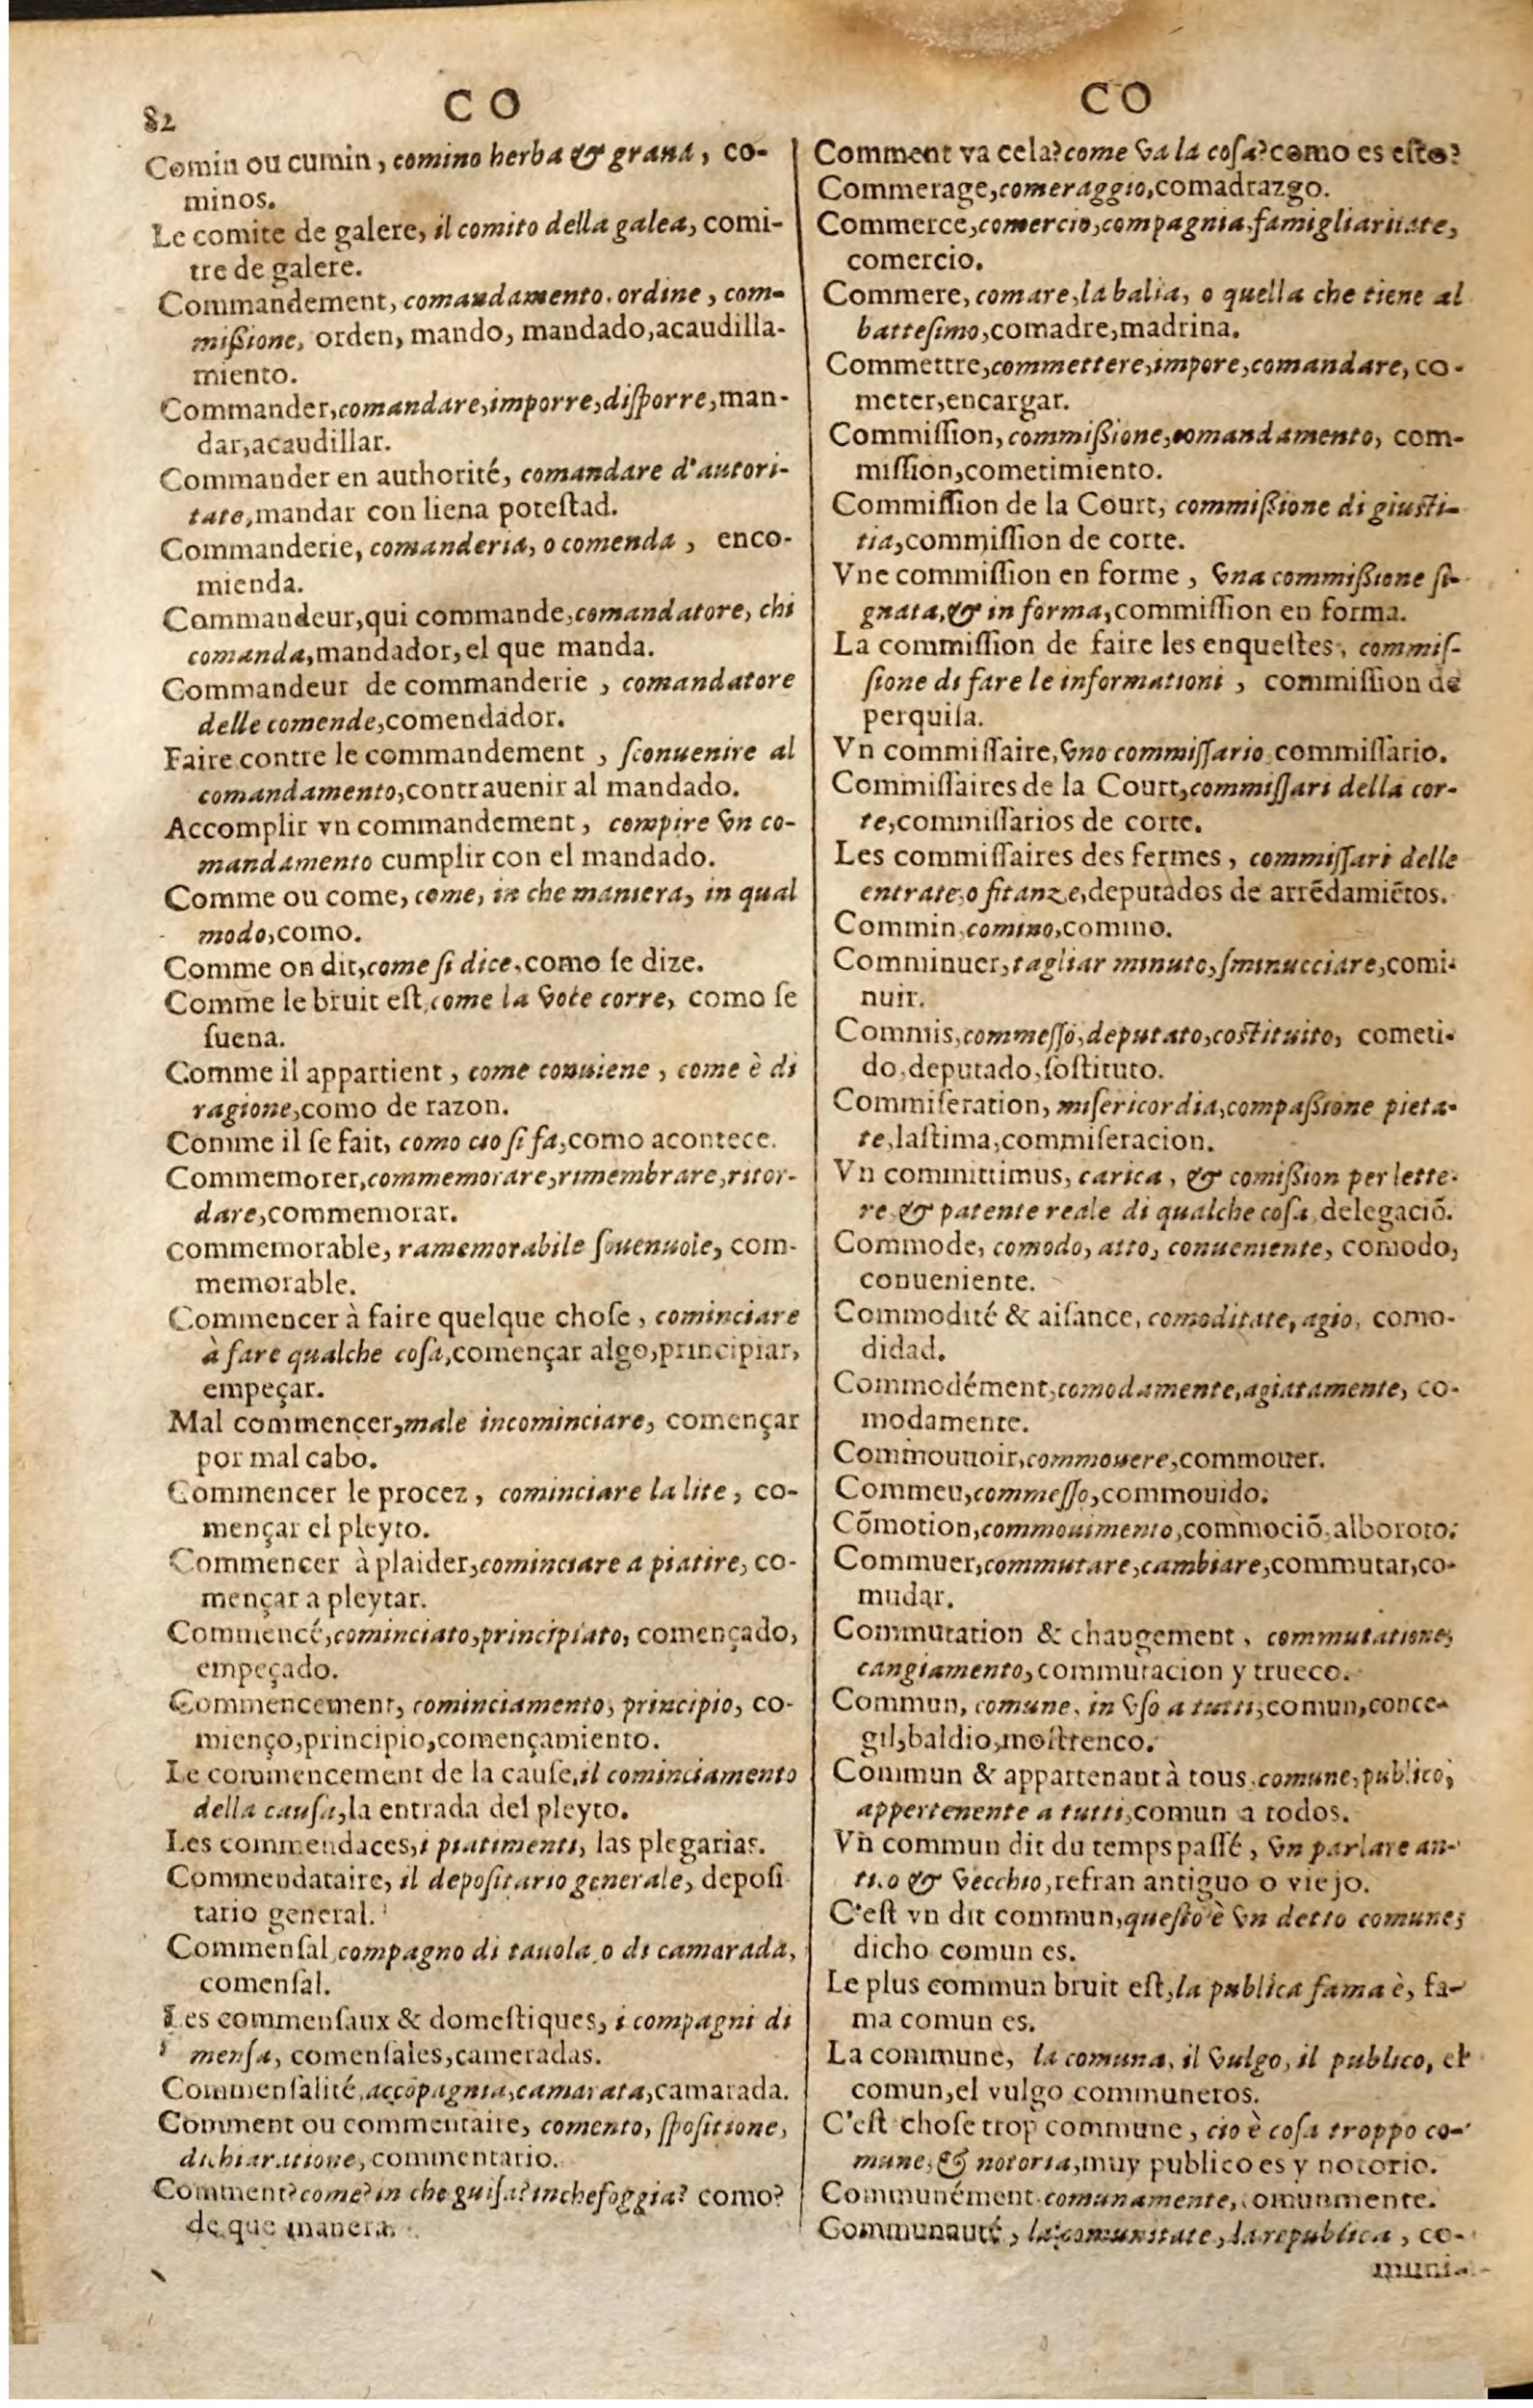 82
CO
CO
Comin ou cumin, comino herba & grana, co-
minos.
Le comite de galere, il comito della galea, comi-
tre de galere.
Commandement, comandamento, ordine, com-
mißione, orden, mando, mandado, acaudilla-
miento.
Commander, comandare, imporre, diſporre, man-
dar, acaudillar.
Commander en authorité, comandare d'autori-
tate, mandar con liena poteſtad.
Commanderie, comanderia, o comenda, enco-
mienda.
Commandeur, qui commande, comandatore, chi
comanda, mandador, el que manda.
Commandeur de commanderie, comandatore
delle comende, comendador.
Faire contre le commandement, ſconuenire al
comandamento, contrauenir al mandado.
Accomplir vn commandement, compire vn co-
mandamento cumplir con el mandado.
Comme ou come, come, in che maniera, in qual
modo, como.
Comme on dit, come ſi dice, como ſe dize.
Comme le bruit eſt, come la vote corre, como ſe
ſuena.
Comme il appartient, come conuiene, come è di
ragione, como de razon.
Comme il ſe fait, como cio ſi fa, como acontece.
Commemorer, commemorare, rimembrare, ritor-
dare, commemorar.
commemorable, ramemorabile ſouenuole, com-
memorable.
Commencer à faire quelque choſe, cominciare
à fare qualche coſa, començar algo, principiar,
empeçar.
Mal commencer, male incominciare, començar
por mal cabo.
Commencer le procez, cominciare la lite, co-
mençar el pleyto.
Commencer à plaider, cominciare a piatire, co-
mençar a pleytar.
Commencé, cominciato, principiato, començado,
empeçado.
Commencement, cominciamento, principio, co-
mienço, principio, començamiento.
Le commencement de la cauſe, il cominciamento
della cauſa, la entrada del pleyto.
Les commendaces, i piatimenti, las plegarias.
Commendataire, il depoſitario generale, depoſi-
tario general.
Commenſal compagno di tauola, o di camarada,
comenſal.
Les commenſaux & domeſtiques, i compagni di
menſa, comenſales, cameradas.
Commenſalité, accōpagnia, camarata, camarada.
Comment ou commentaire, comento, ſpoſitione,
dichiaratione, commentario.
Comment? come? in che guiſa? inchefoggia? como?
de que manera.
Comment va cela? come va la coſa? como es eſto?
Commerage, comeraggio, comadrazgo.
Commerce, comercio, compagnia, famigliaritate,
comercio.
Commere, comare, la balia, o quella che tiene al
batteſimo, comadre, madrina.
Commettre, commettere, impore, comandare, co-
meter, encargar.
Commiſſion, commißione, comandamento, com-
miſſion, cometimiento.
Commiſſion de la Court, commißione di giuſti-
tia, commiſſion de corte.
Vne commiſſion en forme, vna commißione ſi-
gnata, & in forma, commiſſion en forma.
La commiſſion de faire les enqueſtes, commiſ-
ſione di fare le informationi, commiſſion de
perquiſa.
Vn commiſſaire, vno commiſſario commiſſario.
Commiſſaires de la Court, commiſſari della cor-
te, commiſſarios de corte.
Les commiſſaires des fermes, commiſſari delle
entrate, o fitanze, deputados de arrēdamiētos.
Commin, comino, comino.
Comminuer, tagliar minuto, ſminucciare, comi-
nuir.
Commis, commeſſo, deputato, coſtituito, cometi-
do, deputado, ſoſtituto.
Commiſeration, miſericordia, compaßione pieta-
te, laſtima, commiſeracion.
Vn committimus, carica, & comißion per lette-
re, & patente reale di qualche coſa, delegaciō.
Commode, comodo, atto, conueniente, comodo,
conueniente.
Commodité & aiſance, comoditate, agio, como-
didad.
Commodément, comodamente, agiatamente, co-
modamente.
Commouuoir, commouere, commouer.
Commeu, commeſſo, commouido.
Cōmotion, commouimento, commociō, alboroto.
Commuer, commutare, cambiare, commutar, co-
mudar.
Commutation & changement, commutatione,
cangiamento, commutacion y trueco.
Commun, comune, in vſo a tutti, comun, conce-
gil, baldio, moſtrenco.
Commun & appartenant à tous, comune, publico,
appertenente a tutti, comun a todos.
Vn commun dit du temps paſſé, vn parlare an-
tico & vecchio, refran antiguo o viejo.
C'eſt vn dit commun, queſto è vn detto comune,
dicho comun es.
Le plus commun bruit eſt, la publica fama è, fa-
ma comun es.
La commune, la comuna, il vulgo, il publico, el
comun, el vulgo communeros.
C'eſt choſe trop commune, cio è coſa troppo co-
mune, & notoria, muy publico es y notorio.
Communément comunamente, comunmente.
Communauté, la comunitate, la republica, co-
muni-